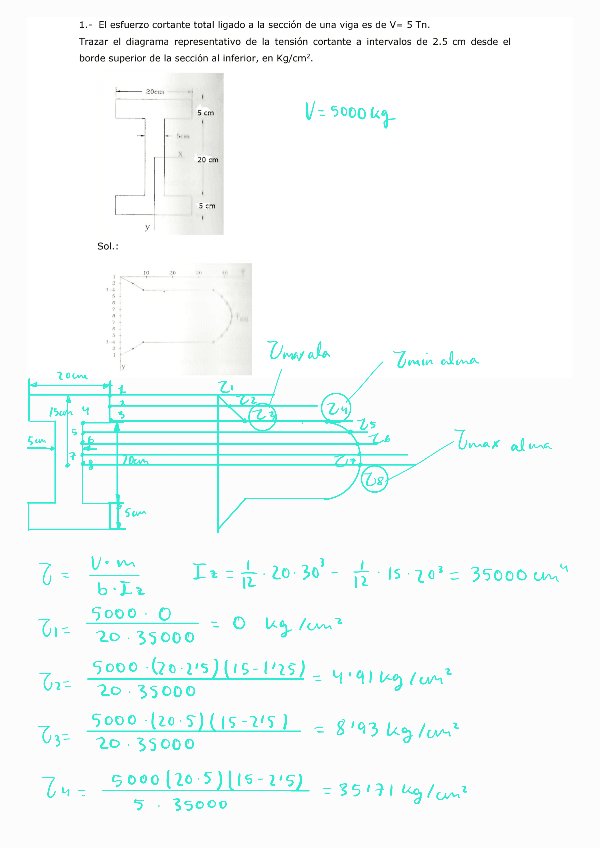 1.- El esfuerzo cortante total ligado a la sección de una viga es de V= 5 Tn.
Trazar el diagrama representativo de la tensión cortante a intervalos de 2.5 cm desde el
borde superior de la sección al inferior, en Kg/cm².
20cm
5 cm
V = 5000 kg
5cm
X
20 cm
5 cm
y
Sol.:
10 20 30
y
τmax ala
τmin alma
20cm
1
τ1
2
τ2
15cm 4
3
τ3
τ4
5
τ5
5cm
6
τ6
τmax alma
7
τ7
8
20cm
τ8
5cm
τ = V·m / b·Iz
Iz = 1/12 · 20·30³ - 1/12 · 15·20³ = 35000 cm⁴
τ1 = 5000 · 0 / 20 · 35000 = 0 kg/cm²
τ2 = 5000 · (20·2'5)(15-1'25) / 20 · 35000 = 4'91 kg/cm²
τ3 = 5000 · (20·5)(15-2'5) / 20 · 35000 = 8'93 kg/cm²
τ4 = 5000 (20·5)(15-2'5) / 5 · 35000 = 35'71 kg/cm²